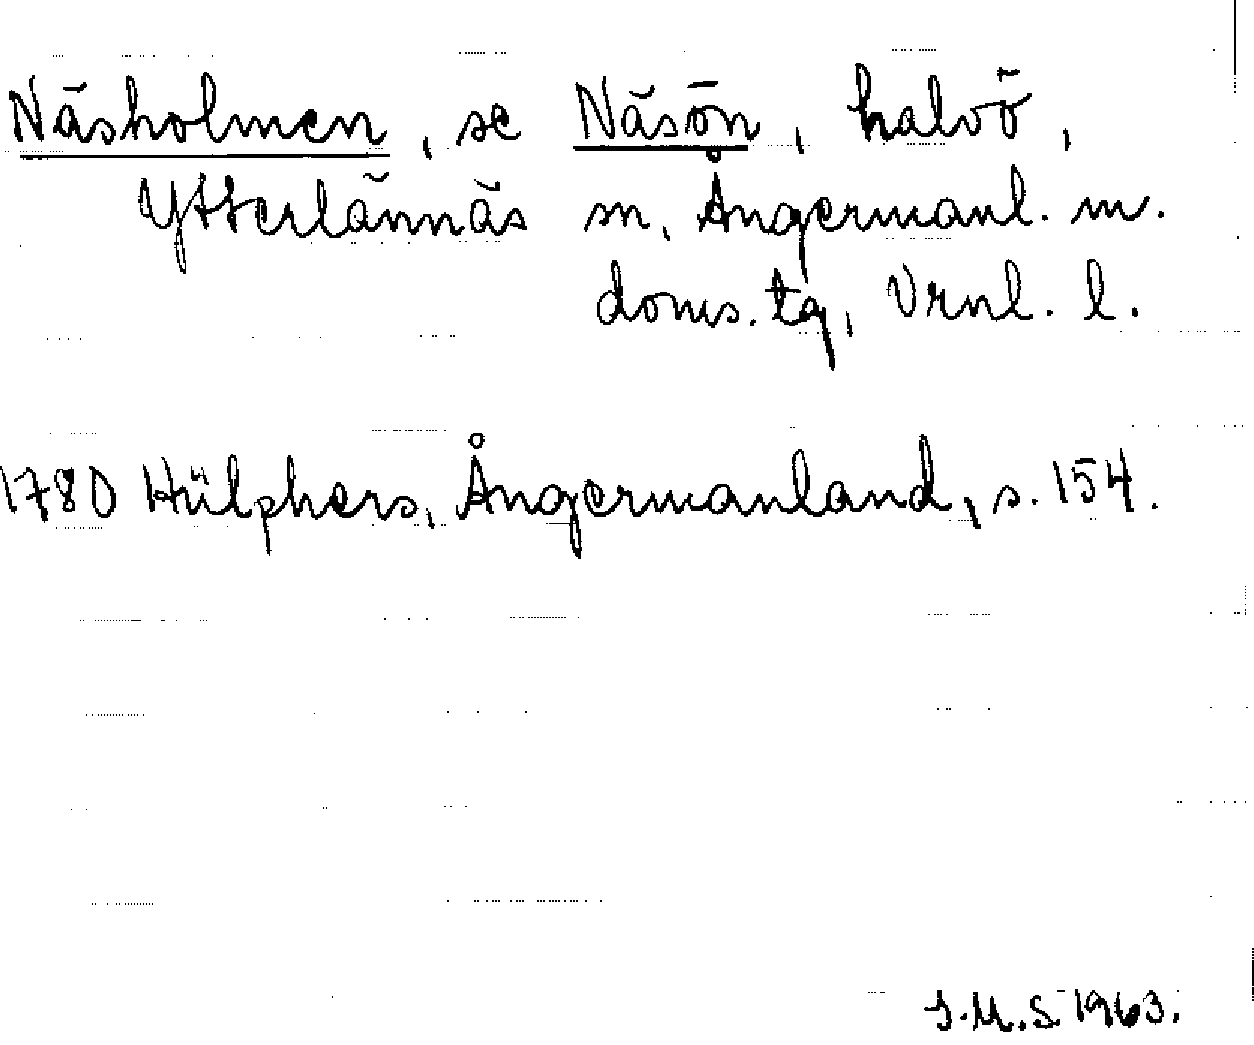 Näsholmen, se Näsön, halvö,
Ytterlännäs sn, Ångermanl. m.
doms. tg, Vrnl. l.
1780 Hülphers, Ångermanland, s. 154.
J.M.S. 1963.